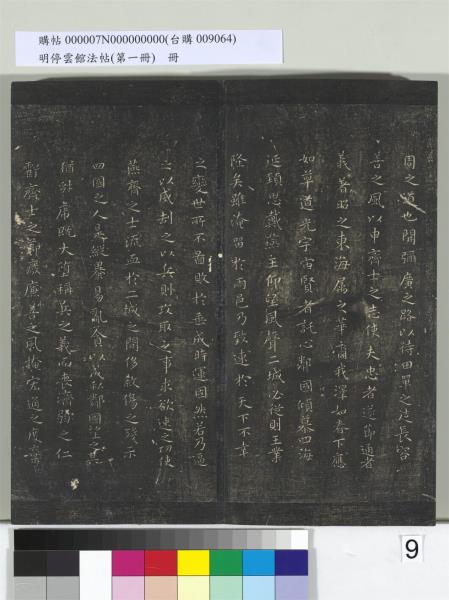 購帖 000007N000000000(台購 009064)
明停雲館法帖(第一冊) 冊
周之道也開彌廣之路以待田單之徒長容
善之風以申齊士之志使夫忠者遂節通者
義著昭之東海屬之華裔我澤如春下應
如草道光宇宙賢者託心鄰國傾慕四海
延頸思戴燕主仰望風聲二城必從則王業
隆矣雖淹留於兩邑乃致速於天下不幸
之變世所不啚敗於垂成時運固然若乃逼
之以威刧之以兵則攻取之事求欲速之功使
燕齊之士流血於二城之間侈殺傷之殘示
四國之人是縱暴易亂貪以成私鄰國望之其
猶豺虎既大墮稱兵之義而喪濟弱之仁
虧齊士之節廢廉善之風掩宏通之度棄
9